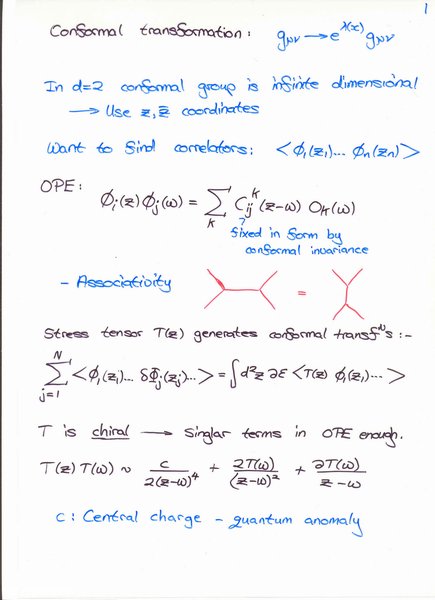 1
Conformal transformation: g_μν → e^λ(x) g_μν
In d=2 conformal group is infinite dimensional
→ Use z, z̄ coordinates
Want to find correlators: <φ₁(z₁)... φₙ(zₙ)>
OPE:
φᵢ(z) φⱼ(ω) = ∑_K C_ij^K (z-ω) O_K(ω)
fixed in form by
conformal invariance
- Associativity =
Stress tensor T(z) generates conformal transfⁿs :-
∑_{j=1}^{N} <φ₁(z₁)... δΦⱼ(zⱼ)...> = ∫d²z ∂ε <T(z) φ₁(z₁)...>
T is chiral → Singlar terms in OPE enough.
T(z)T(ω) ~ c/2(z-ω)⁴ + 2T(ω)/(z-ω)² + ∂T(ω)/z-ω
c: Central charge - quantum anomaly